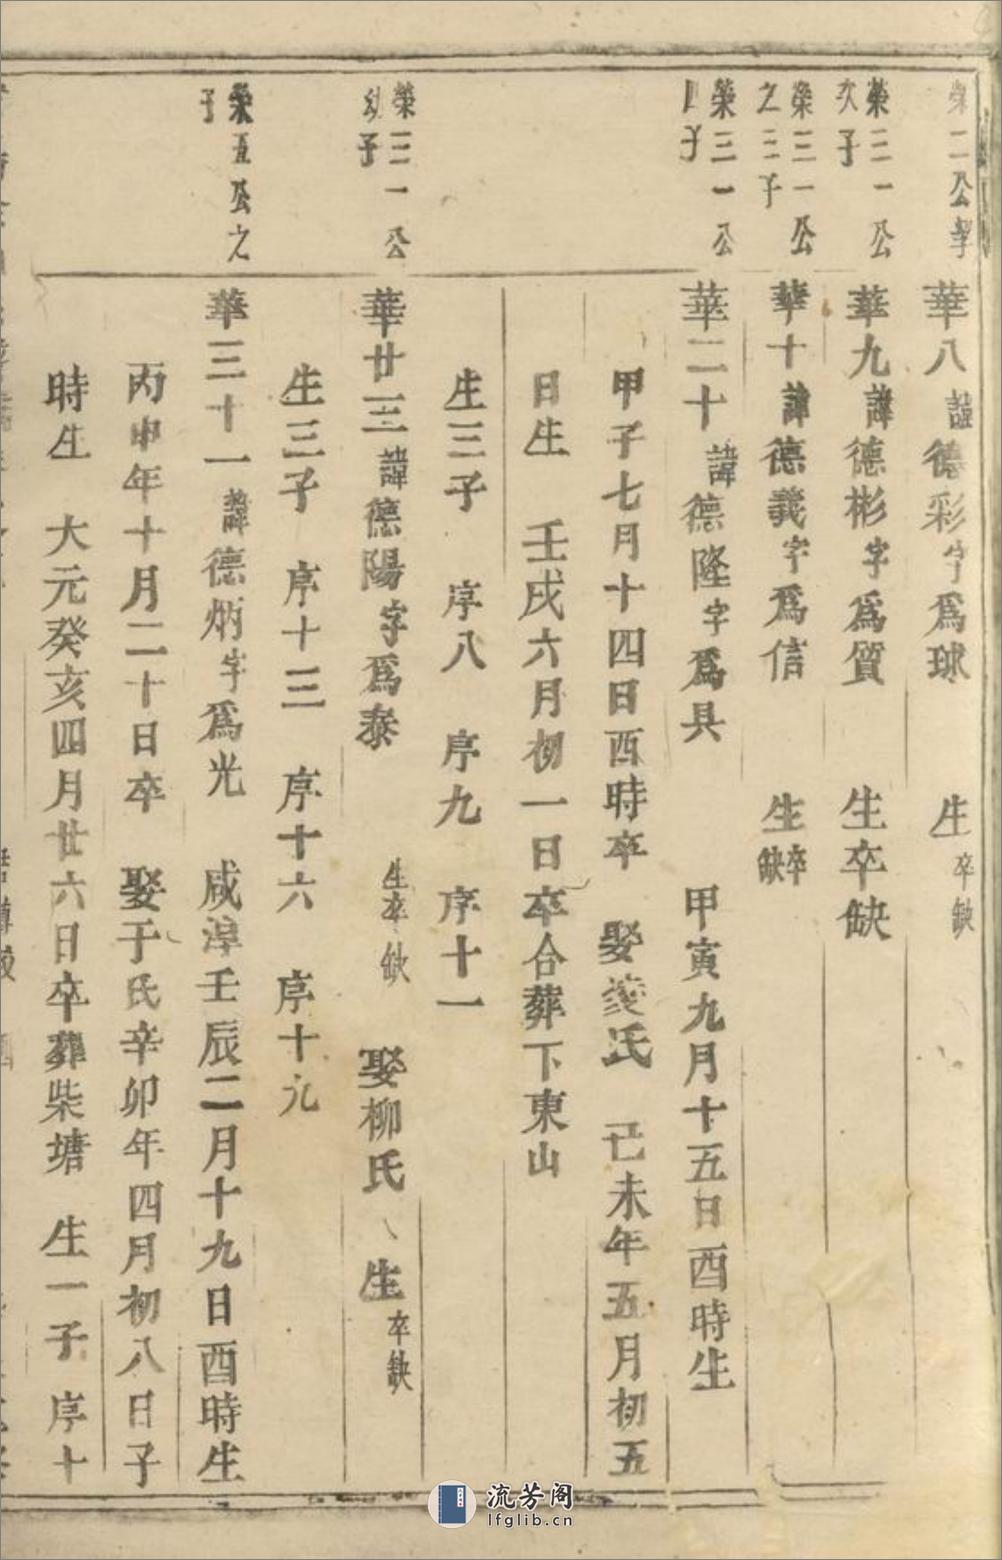 榮二公
華八諱德彩字爲球 生卒缺
榮三一公
次子
華九諱德彬字爲質 生卒缺
榮三一公
之三子
華十諱德義字爲信 生卒缺
榮三一公
四子
華二十諱德隆字爲具 甲寅九月十五日酉時生
甲子七月十四日酉時卒 娶姜氏 己未年五月初五
日生 壬戌六月初一日卒合葬下東山
生三子 序八 序九 序十一
榮三一公
幼子
華廿三諱德陽字爲泰 生卒缺 娶柳氏 生卒缺
生三子 序十三 序十六 序十九
榮五公之
子
華三十一諱德炳字爲光 咸淳壬辰二月十九日酉時生
丙申年十月二十日卒 娶于氏辛卯年四月初八日子
時生 大元癸亥四月廿六日卒葬柴塘 生一子 序十
流芳阁
lfglib.cn